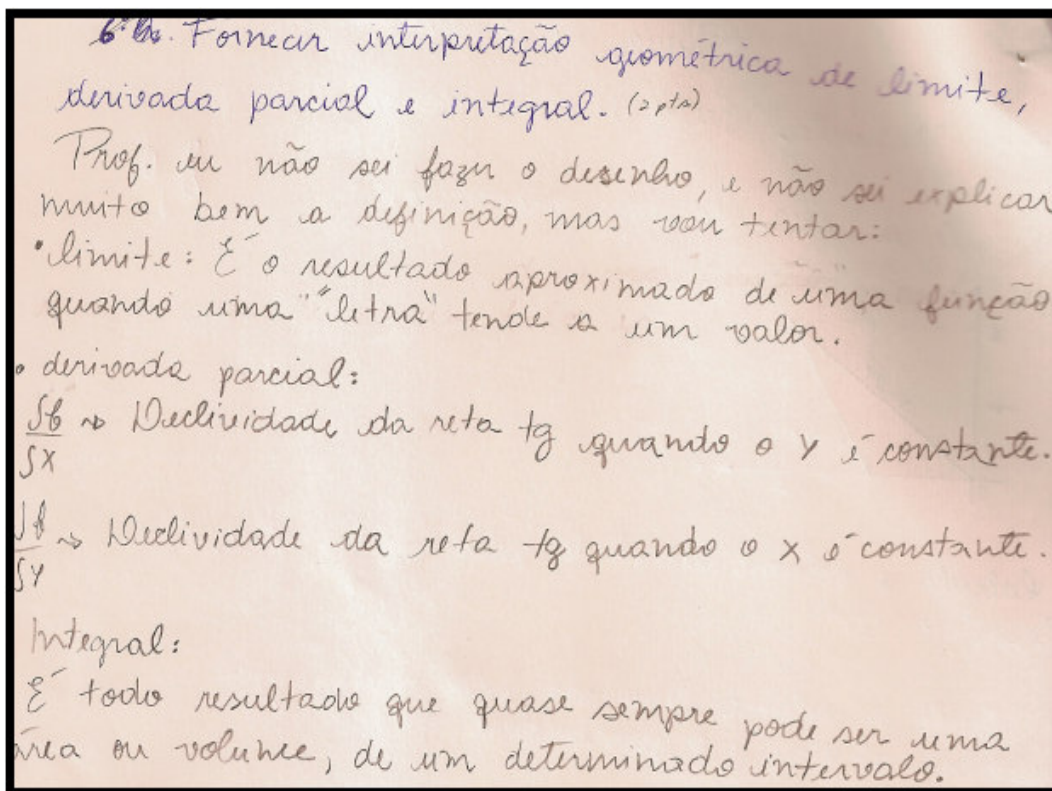 Fornecer interpretação geométrica de limite,
derivada parcial e integral. (2 pts)
Prof. eu não sei fazer o desenho, e não sei explicar
muito bem a definição, mas vou tentar:
• limite: É o resultado aproximado de uma função
quando uma "letra" tende a um valor.
• derivada parcial:
∫f/∫X → Declividade da reta tg quando o Y é constante.
∫f/∫Y → Declividade da reta tg quando o X é constante.
Integral:
É todo resultado que quase sempre pode ser uma
área ou volume, de um determinado intervalo.